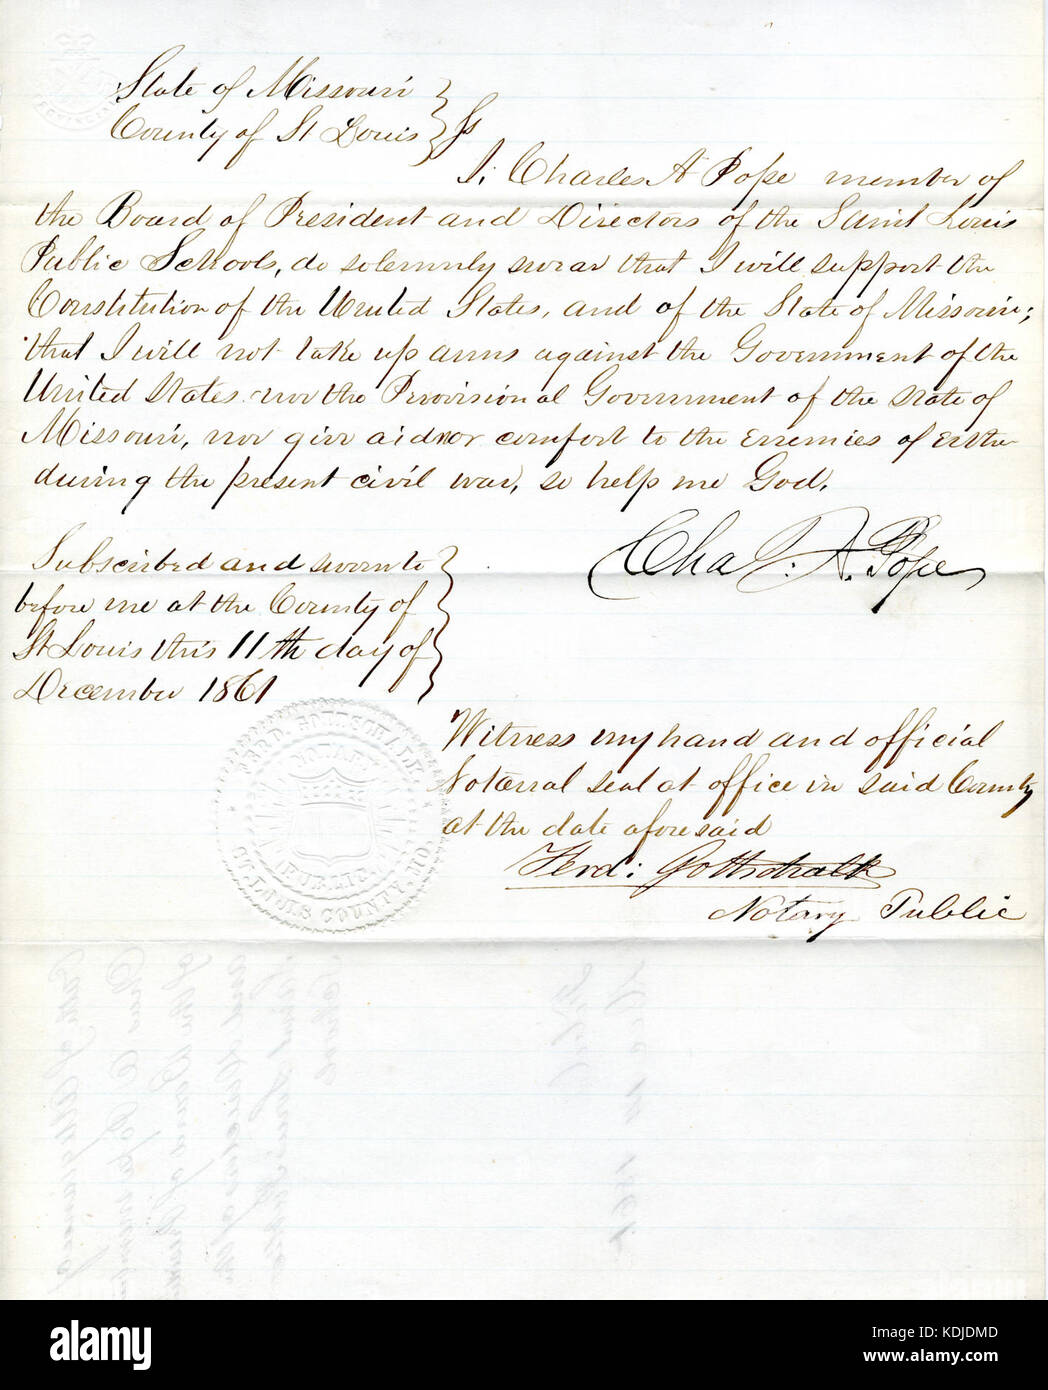 State of Missouri
County of St Louis } Ss
I, Charles A Pope member of
the Board of President and Directors of the Saint Louis
Public Schools, do solemnly swear that I will support the
Constitution of the United States, and of the State of Missouri;
that I will not take up arms against the Government of the
United States nor the Provisional Government of the State of
Missouri, nor give aid nor comfort to the Enemies of either
during the present civil war, so help me God.
Chas. A. Pope
Subscribed and sworn to
before me at the County of
St Louis this 11th day of
December 1861
Witness my hand and official
Notarial seal at office in said County
at the date aforesaid
Ferd: Gottschalk
Notary Public
FERD. GOTTSCHALK
NOTARY
PUBLIC
ST. LOUIS COUNTY, MO.
alamy
Image ID: KDJDMD
www.alamy.com